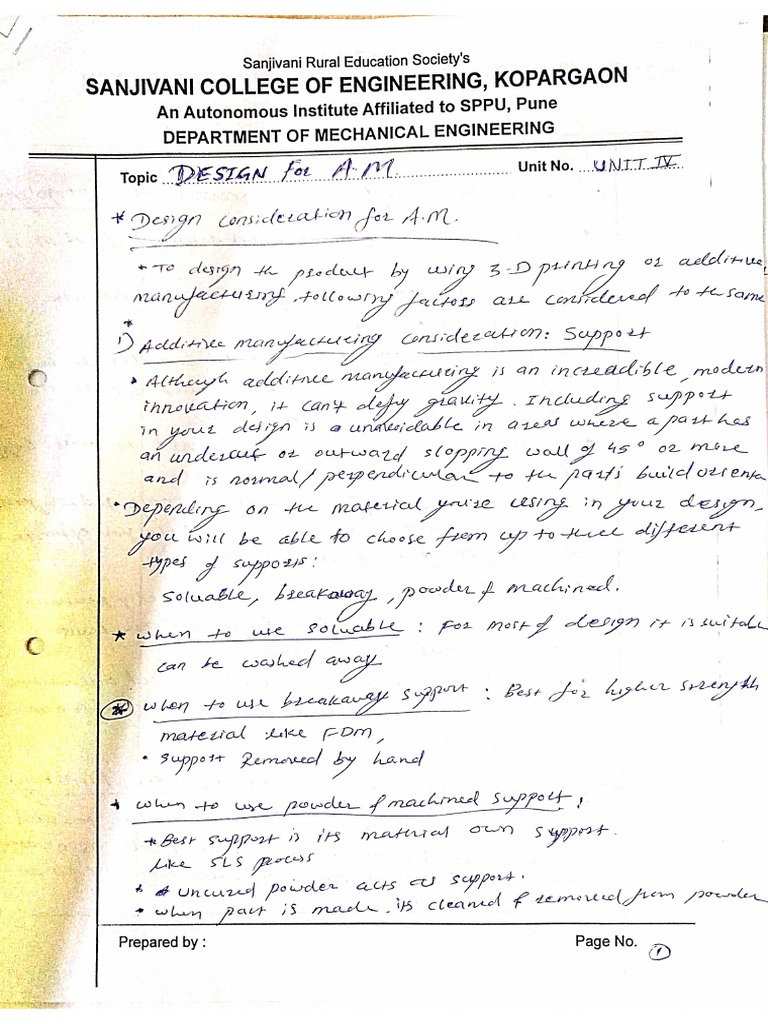 Sanjivani Rural Education Society's
SANJIVANI COLLEGE OF ENGINEERING, KOPARGAON
An Autonomous Institute Affiliated to SPPU, Pune
DEPARTMENT OF MECHANICAL ENGINEERING
Topic DESIGN for A.M. Unit No. UNIT IV
* Design consideration for A.M.
• To design the product by using 3-D printing or additive
manufacturing, following factors are considered to the same
1) Additive manufacturing consideration: Support
• Although additive manufacturing is an increadible, modern
innovation, it can't defy gravity. Including support
in your design is a unavoidable in areas where a part has
an undercut or outward slopping wall of 45° or more
and is normal/perpendicular to the parts build orienta
• Depending on the material you're using in your design,
you will be able to choose from up to three different
types of supports:
soluable, breakaway, powder & machined.
* when to use soluable : For most of design it is suitable
can be washed away
* when to use breakaway support : Best for higher strength
material like FDM,
• support removed by hand
* when to use powder & machined support :
* Best support is its material own support.
like SLS process
* uncured powder acts as support.
• when part is made, its cleaned & removed from powder
Prepared by : Page No. 1